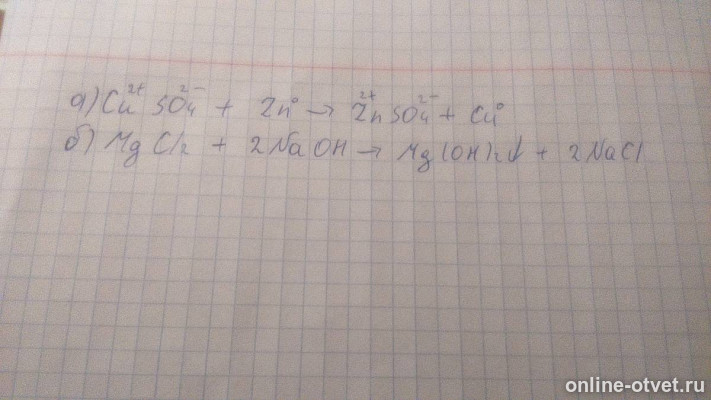 а) Cu²⁺SO₄²⁻ + Zn⁰ → Zn²⁺SO₄²⁻ + Cu⁰
б) MgCl₂ + 2NaOH → Mg(OH)₂↓ + 2NaCl
online-otvet.ru